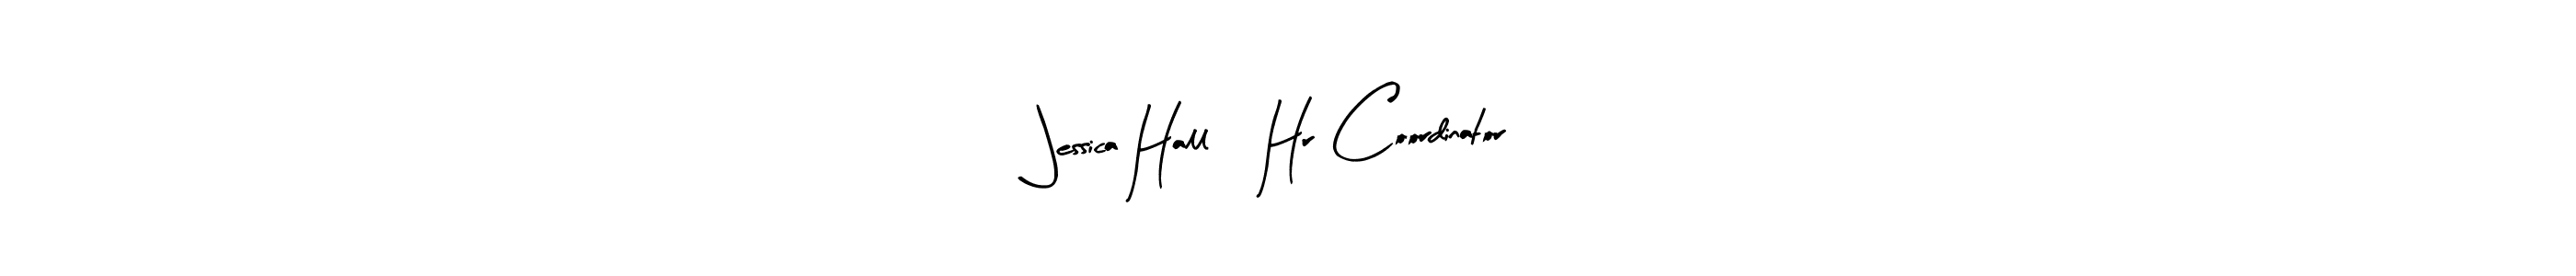 Jessica Hall Hr Coordinator